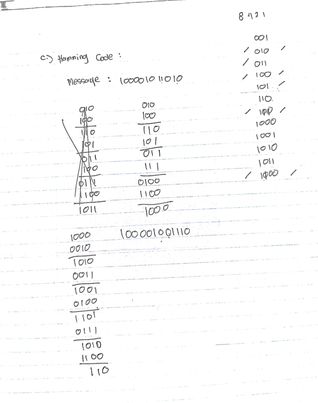 8 4 2 1
c) Hamming Code :
Message : 10000101 1010
001
/ 010 /
/ 011
/ 100 /
101 /
110
/ 100 /
1000
1001
1010
1011
/ 1000 /
010
100
110
101
011
100
0111
1100
1011
010
100
110
101
011
111
0100
1100
1000
1000
0010
1010
0011
1001
0100
1101
0111
1010
1100
110
100001001110